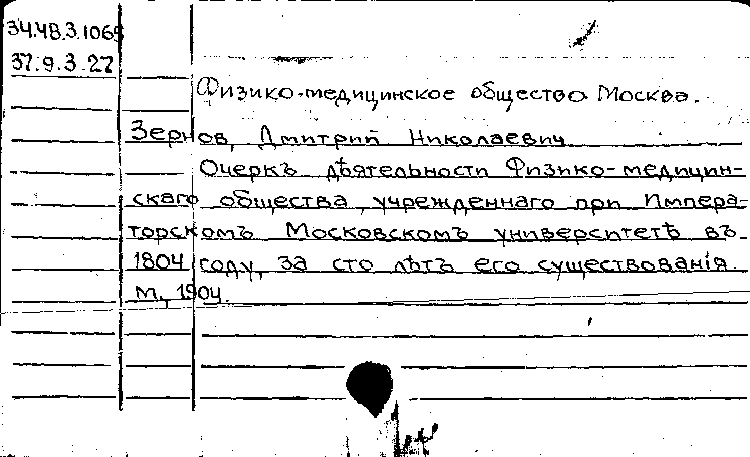 34.48.3.1065
37.9.3.27
Физико-медицинское общество. Москва.
Зернов, Дмитрий Николаевич
Очеркъ дѣятельности Физико-медицин-
скаго общества, учрежденнаго при Импера-
торскомъ Московскомъ университетѣ въ
1804 году, за сто лѣтъ его существованія.
М., 1904.